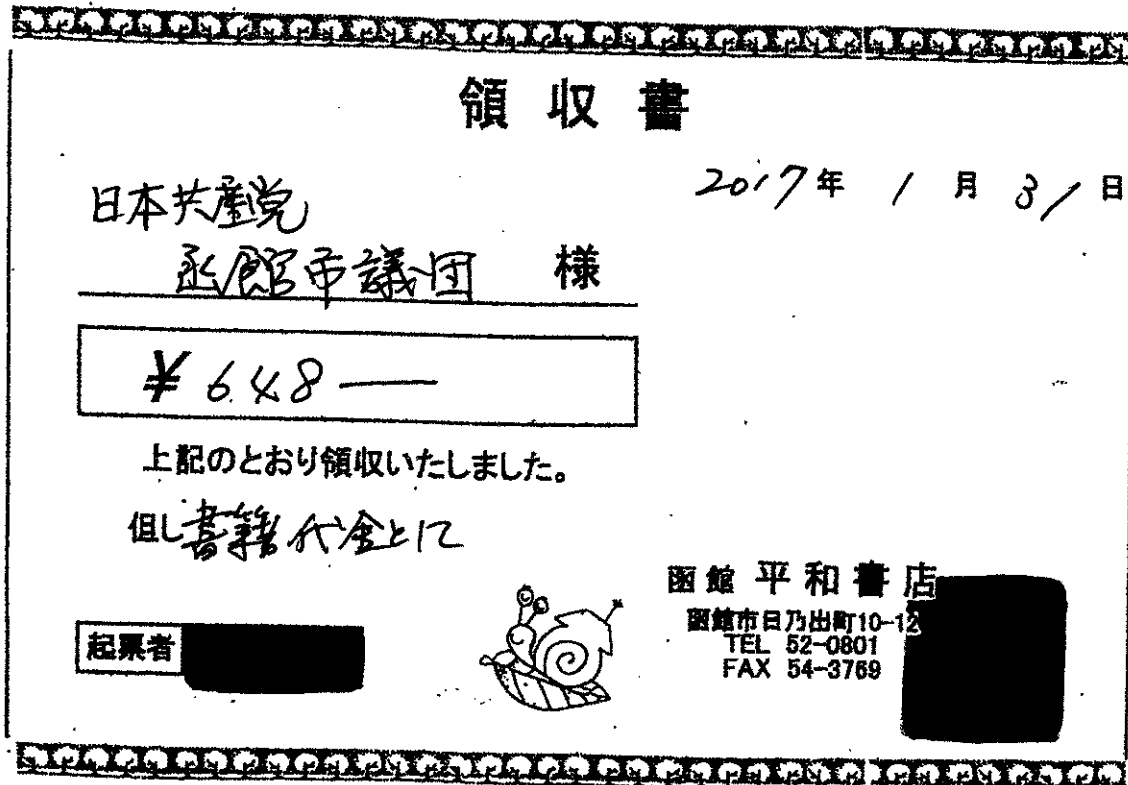 領収書
2017年 1月 31日
日本共産党
函館市議団 様
¥648—
上記のとおり領収いたしました。
但し書籍代金として
函館 平和書店
函館市日乃出町10-12
TEL 52-0801
FAX 54-3769
起票者